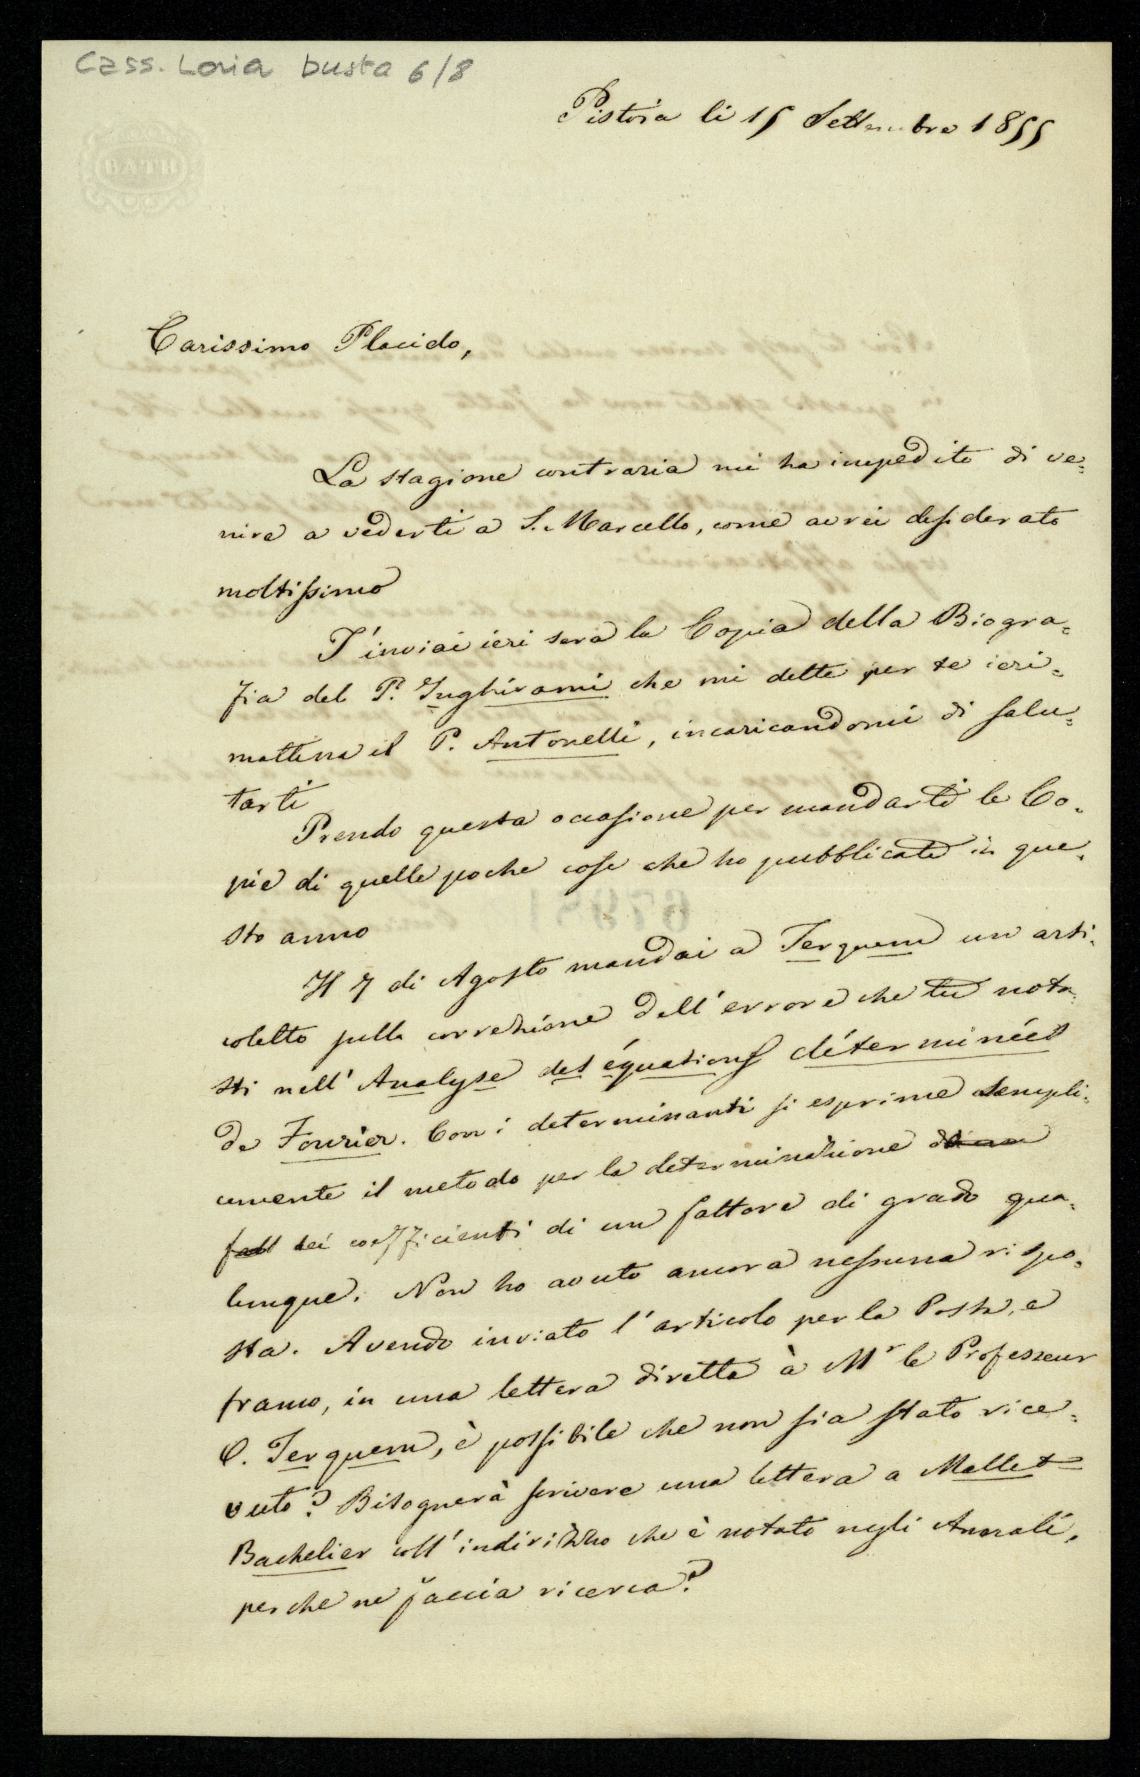 Cass. Loria busta 6/8
BATH
Pistoia li 15 Settembre 1855
Carissimo Placido,
La stagione contraria mi ha impedito di ve=
nire a vederti a S. Marcello, come avrei desiderato
moltissimo
T'inviai ieri sera la Copia della Biogra=
fia del P. Inghirami che mi dette per te ieri=
mattina il P. Antonelli, incaricandomi di salu=
tarti
Prendo questa occasione per mandarti le Co=
pie di quelle poche cose che ho pubblicate in que=
sto anno
Il 7 di Agosto mandai a Terquem un arti=
coletto sulla correzione dell'errore che tu nota=
sti nell'Analyse des équations déterminées
de Fourier. Con i determinanti si esprime sempli=
cemente il metodo per la determinazione
dei coefficienti di un fattore di grado qua=
lunque. Non ho avuto ancora nessuna rispo=
sta. Avendo inviato l'articolo per la Posta, e
franco, in una lettera diretta à Mr le Professeur
O. Terquem, è possibile che non sia stato rice=
vuto? Bisognerà scrivere una lettera a Mallet
Bachelier coll'indirizzo che è notato negli Annali,
perche ne faccia ricerca?